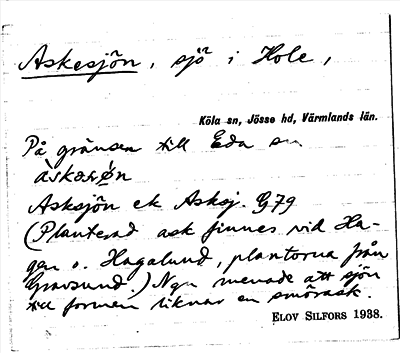 Askesjön, sjö i Hole,
Köla sn, Jösse hd, Värmlands län.
På gränsen till Eda sn
Asksjön ek Asksj. G79
(Planterad ask finnes vid Ha-
gen o. Hagalund, plantorna från
Gravsund.) Ngn menade att sjön
till formen liknar en smörask.
ELOV SILFORS 1938.